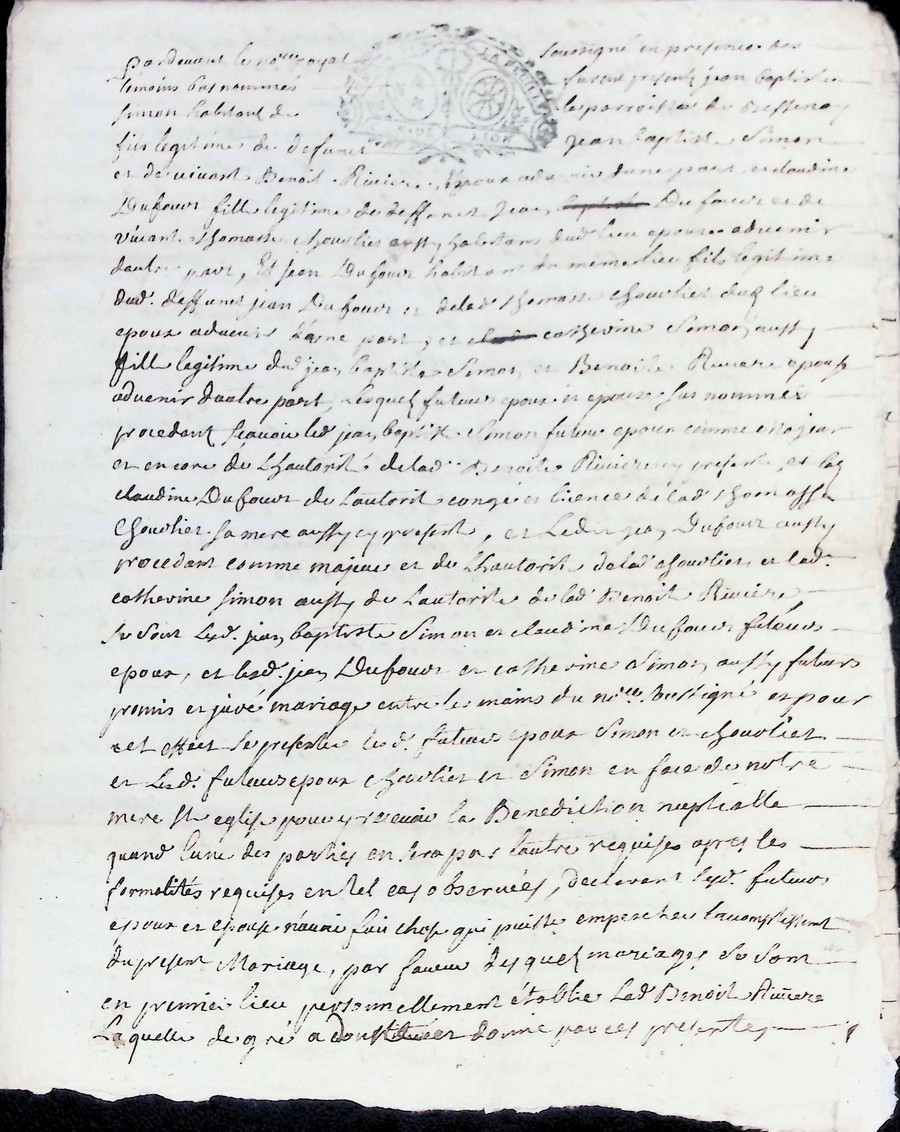 pardevant les no.re royal soussigné en presence des
témoins bas nommés furent presents jean baptiste
simon habitant de la parroisse de Bessenay
fils legitime de defunct jean baptiste Simon
et de vivant Benoite Riviere, Epoux advenir dune part, et claudine
Dufour fille legitime de deffunct Jean Dufour et de
vivant thomasse chourlier aussy habitans dud. lieu epouse advenir
dautre part, Et jean Dufour habitant du même lieu fils legitime
dud. deffunct jean Dufour et delad. thomasse chourlier dud lieu
epoux advenir dune part, et catherine Simon aussy
fille legitime dud jean baptiste Simon et Benoite Riviere epouse
advenir dautre part, Lesquels futurs epoux et epouse sus nommés
procedant sçavoir led. jean baptiste Simon futur epoux comme majeur
et encore de Lhautorité delad. Benoite Riviere cy presente, et lad.
claudine Dufour de Lautorité congé et licence de lad thomasse
Chourlier sa mere aussy cy presente, et Led. jean Dufour aussy
procedant comme majeur et de Lhautorité delad chourlier et lad.
catherine simon aussy de Lautorité de lad Benoite Riviere,
se sont Lesd. jean baptiste Simon et claudine Dufour futurs
epoux, et lesd. jean Dufour et catherine Simon aussy futurs
promis et juré mariage entre les mains du no.re soussigné et pour
cet effect se presenter lesd. futurs epoux Simon et chourlier
et Lesd. futurs epoux chourlier et Simon en face de notre
mere Ste eglise pour y recevoir la Benediction nuptialle
quand lune des parties en sera par lautre requises apres les
formalités requises en tel cas observées, declarant lesd. futurs
epoux et epouse n'avoir fait chose qui puisse empescher lacomplissement
du present Mariage, par faveur desquels mariages se sont
en premier lieu personnellement établie Lad Benoite Riviere
Laquelle de gré a constitué et donné par ces presentes